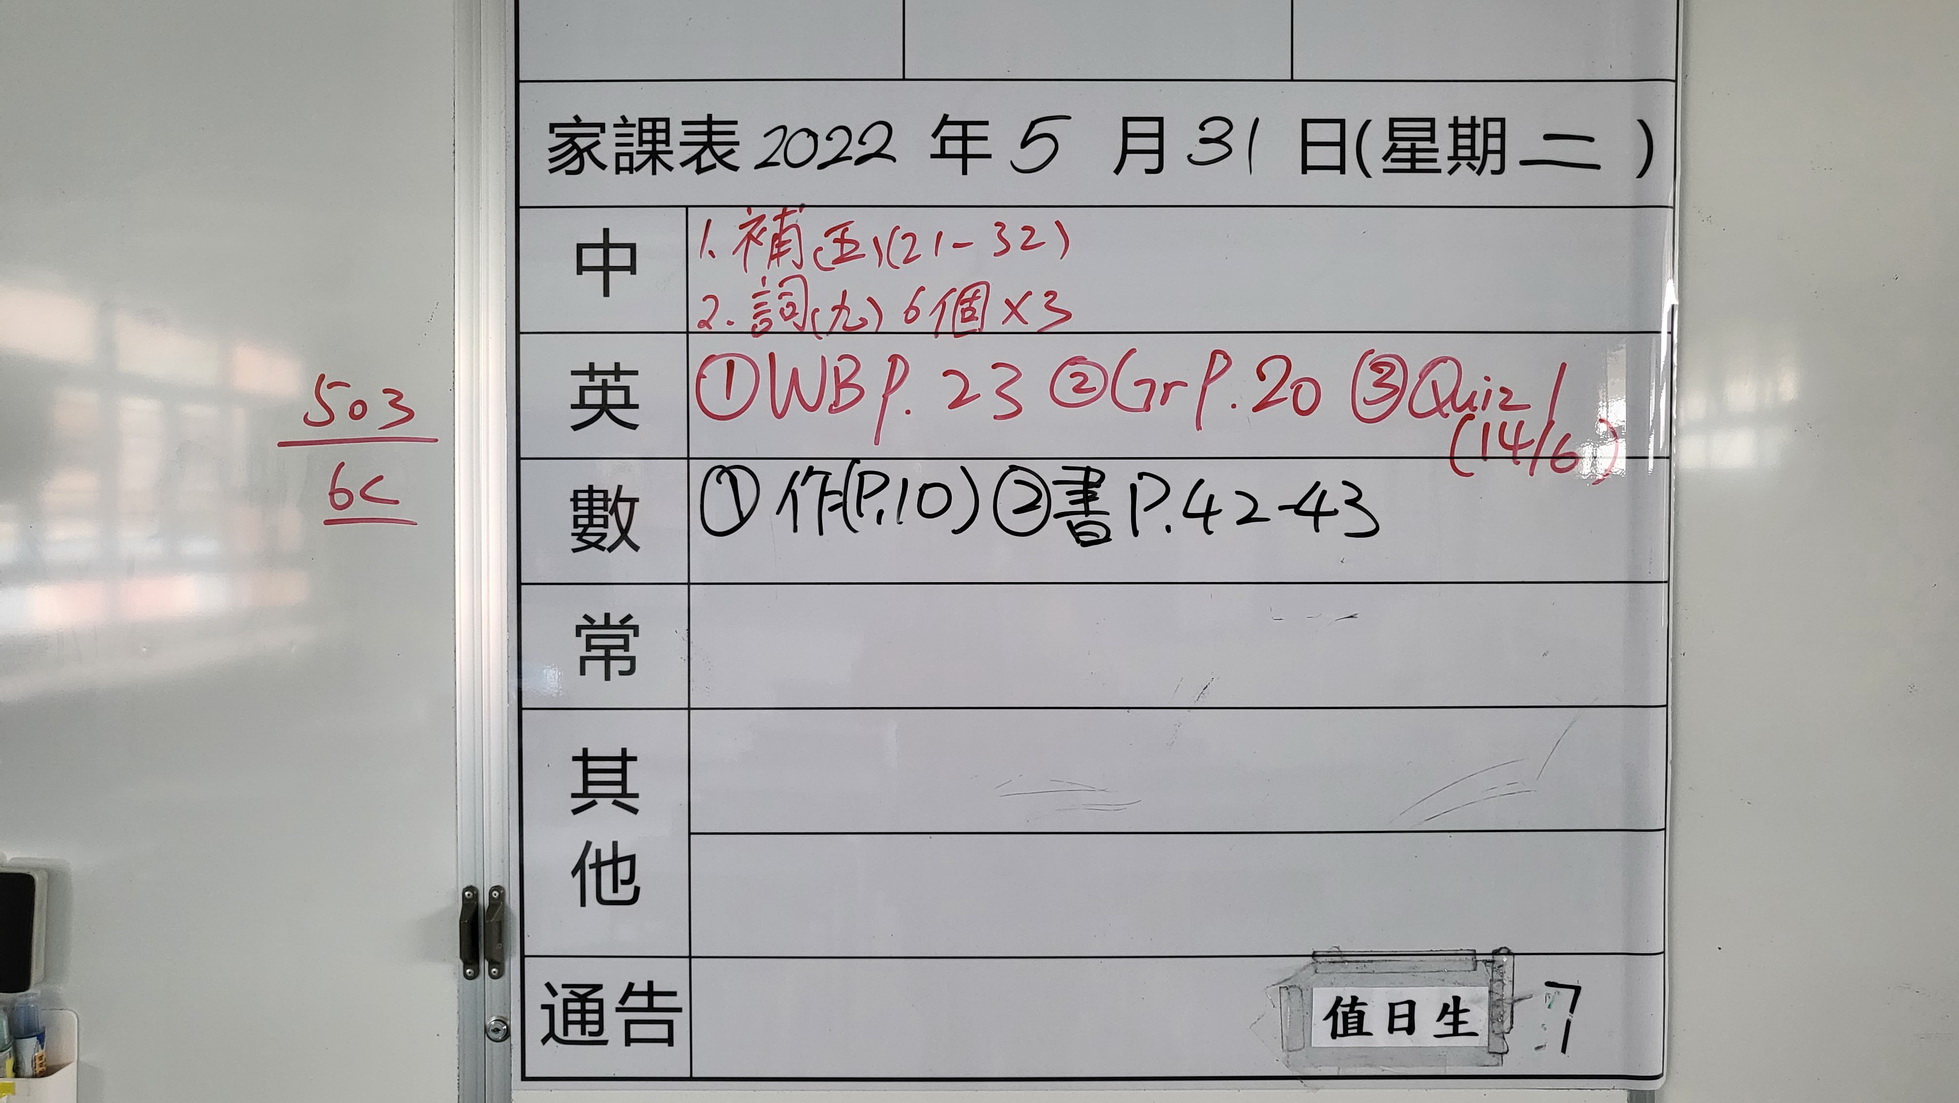 家課表 2022 年 5 月 31 日(星期 二 )
中
1. 補(五)(21-32)
2. 詞(九) 6個 x3
英
①WB P. 23 ②Gr P. 20 ③Quiz 1
(14/6)
數
①作(P.10) ②書 P.42-43
常
其他
通告
值日生 7
503
6C